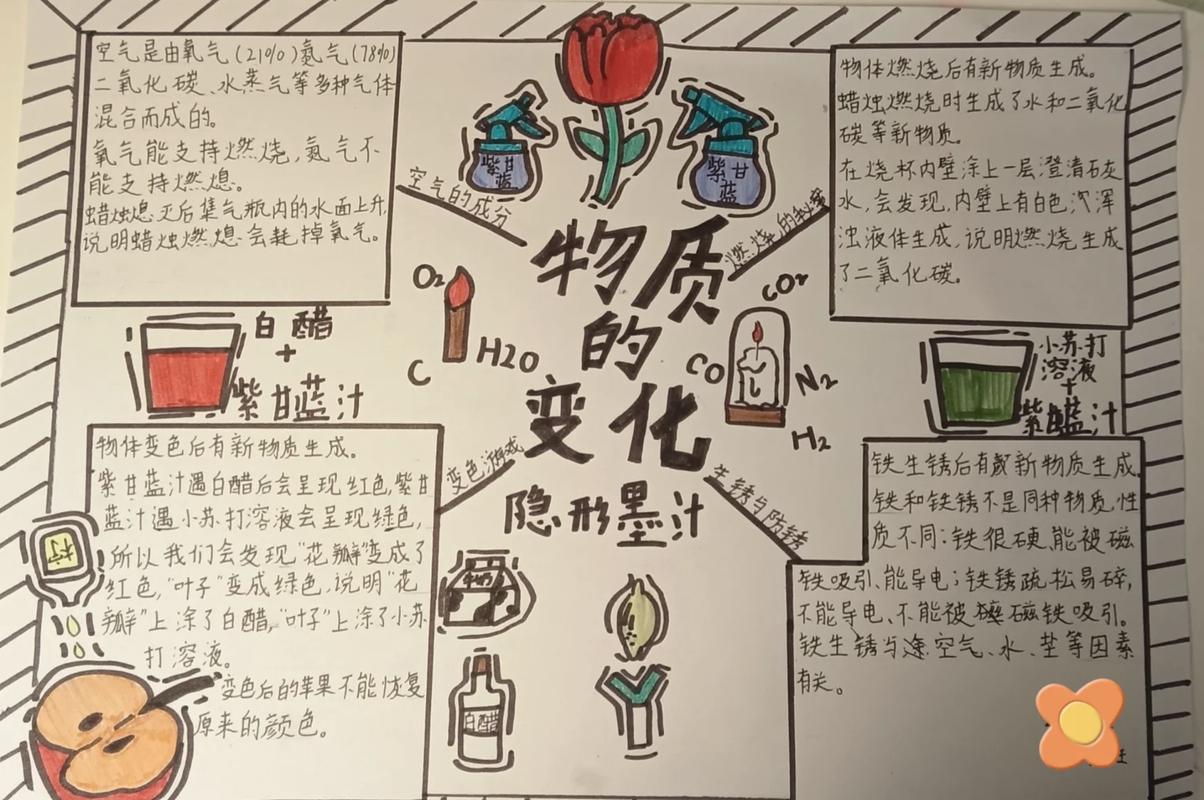 空气是由氧气(21%)氮气(78%)
二氧化碳、水蒸气等多种气体
混合而成的。
氧气能支持燃烧,氮气不
能支持燃熄。
蜡烛熄灭后集气瓶内的水面上升,
说明蜡烛燃熄会耗掉氧气。
紫甘
蓝
紫甘
蓝
物体燃烧后有新物质生成。
蜡烛燃烧时生成了水和二氧化
碳等新物质。
在烧杯内壁涂上一层澄清石灰
水,会发现,内壁上有白色沉浑
浊液体生成,说明燃烧生成
了二氧化碳。
空气的成分
燃烧的秘密
物质
的
变化
隐形墨汁
O2
C
H2O
CO2
CO
N2
H2
白醋
+
紫甘蓝汁
小苏打
溶液
+
紫甘蓝汁
变色游戏
生锈与防锈
物体变色后有新物质生成。
紫甘蓝汁遇白醋后会呈现红色,紫甘
蓝汁遇小苏打溶液会呈现绿色,
所以我们会发现"花瓣"变成了
红色,"叶子"变成绿色,说明"花
瓣"上涂了白醋,"叶子"上涂了小苏
打溶液。
变色后的苹果不能恢复
原来的颜色。
白醋
铁生锈后有新物质生成。
铁和铁锈不是同种物质,性
质不同:铁很硬,能被磁
铁吸引、能导电;铁锈疏松易碎,
不能导电、不能被磁铁吸引。
铁生锈与空气、水、盐等因素
有关。